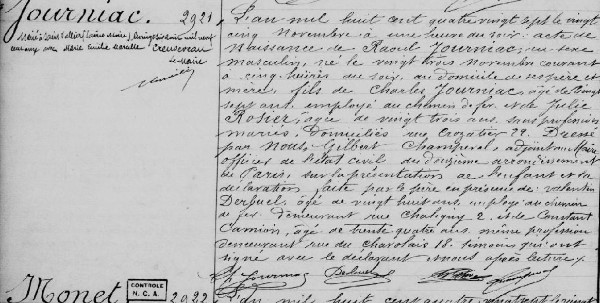 Journiac. 2921
Marié à
le vingt mil neuf
avec Marie Emilie
le Maire
L'an mil huit cent quatre vingt sept le vingt
cinq Novembre à une heure du soir: acte de
Naissance de Raoul Journiac, du sexe
masculin, né le vingt trois Novembre courant
à cinq heures du soir, au domicile de ses père et
mère, fils de Charles Journiac, âgé de vingt
sept ans employé au chemin de fer et de Julie
Rosier, âgée de vingt trois ans, sans profession
mariés, domiciliés rue Crozatier 22. Dressé
par Nous, Gilbert Champeval, adjoint au Maire
officier de l'état civil du douzième arrondissement
de Paris, sur la présentation de l'enfant et la
déclaration faite par le père en présence de: Valentin
âgé de vingt huit ans, employé au chemin
de fer, demeurant rue Chaligny 2, et de Constant
Camion, âgé de trente quatre ans, même profession
demeurant rue du Charolais 18. témoins qui ont
signé avec le déclarant et nous après lecture.
Journiac
Monet 2922
CONTROLE
N. C. A.
L'an mil huit cent quatre vingt sept le vingt